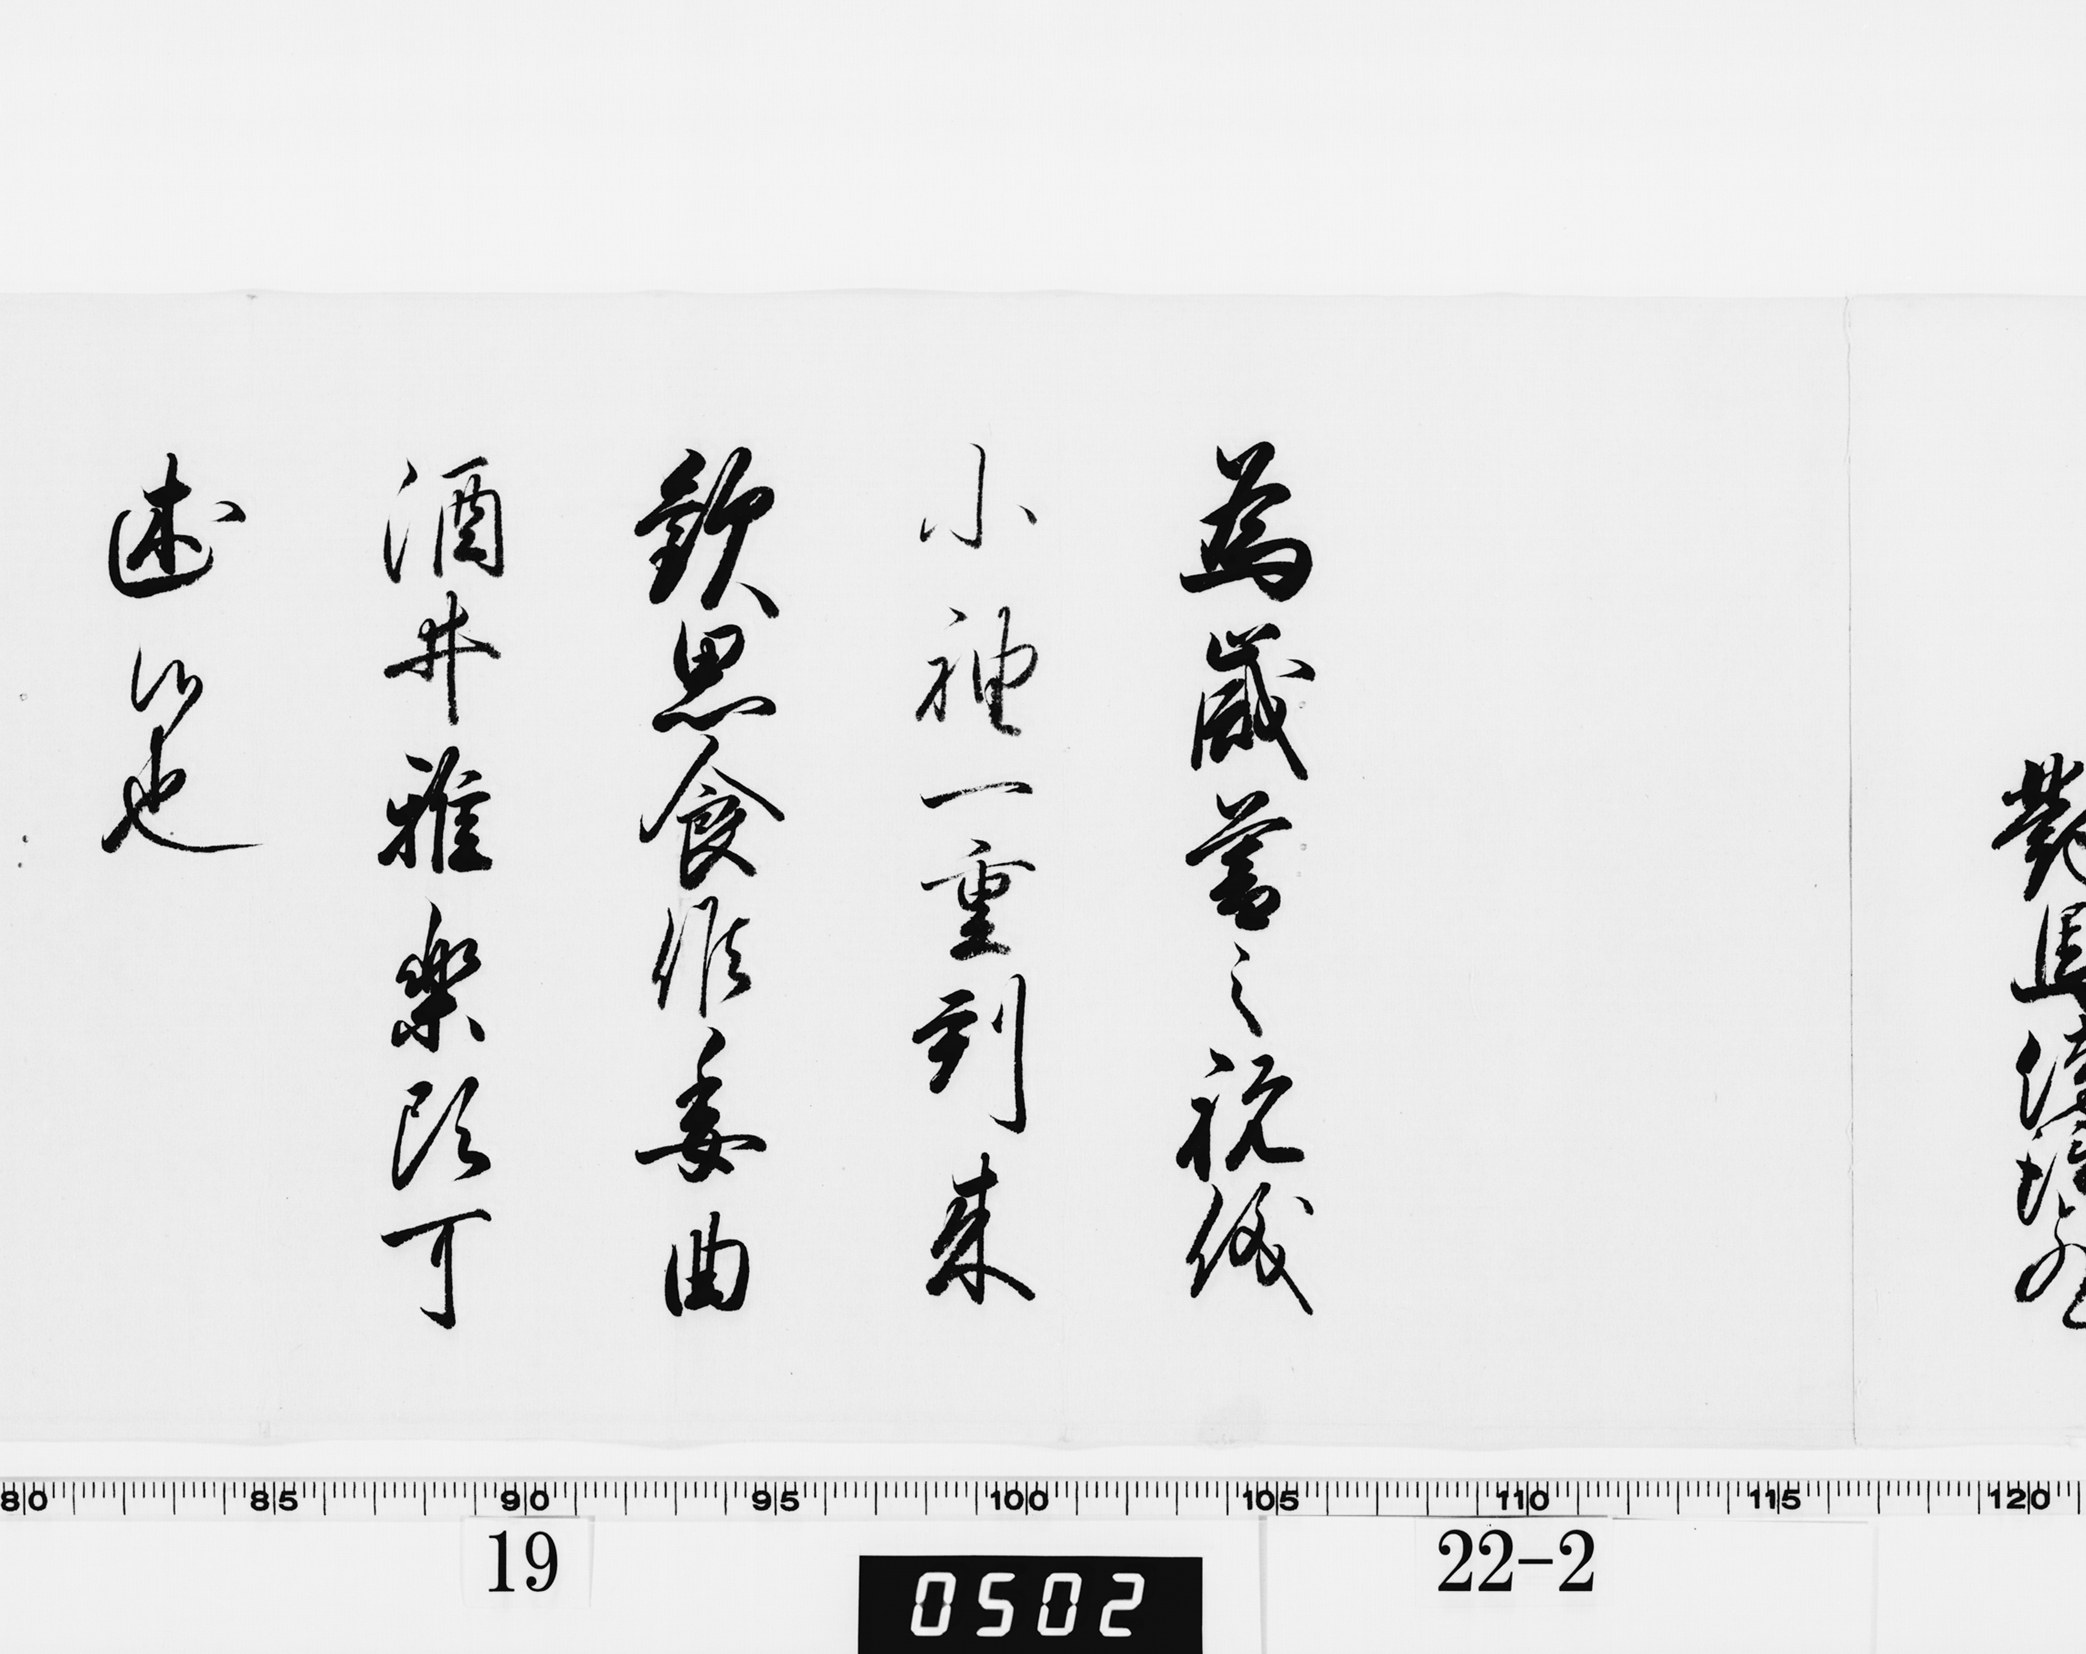 對馬侍従殿
為歳暮之祝儀
小袖一重到来
歓思食候委曲
酒井雅楽頭可
述候也
80 85 90 95 100 105 110 115 120
19
22-2
0502